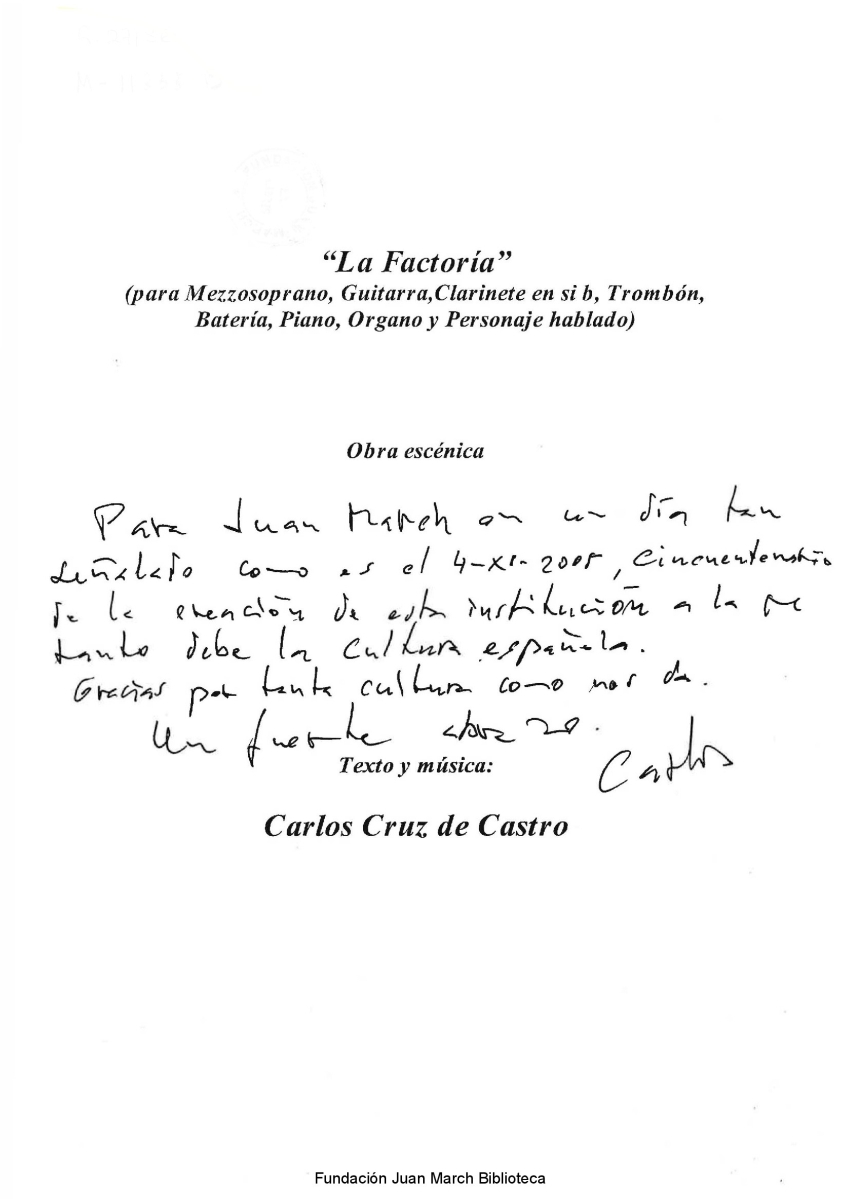 “La Factoría”
(para Mezzosoprano, Guitarra,Clarinete en si b, Trombón,
Batería, Piano, Organo y Personaje hablado)
Obra escénica
Para Juan March en un día tan
señalado como es el 4-XI-2005, Cincuentenario
de la creación de esta institución a la que
tanto debe la cultura española.
Gracias por tanta cultura como nos da.
Un fuerte abrazo.
Carlos
Texto y música:
Carlos Cruz de Castro
Fundación Juan March Biblioteca